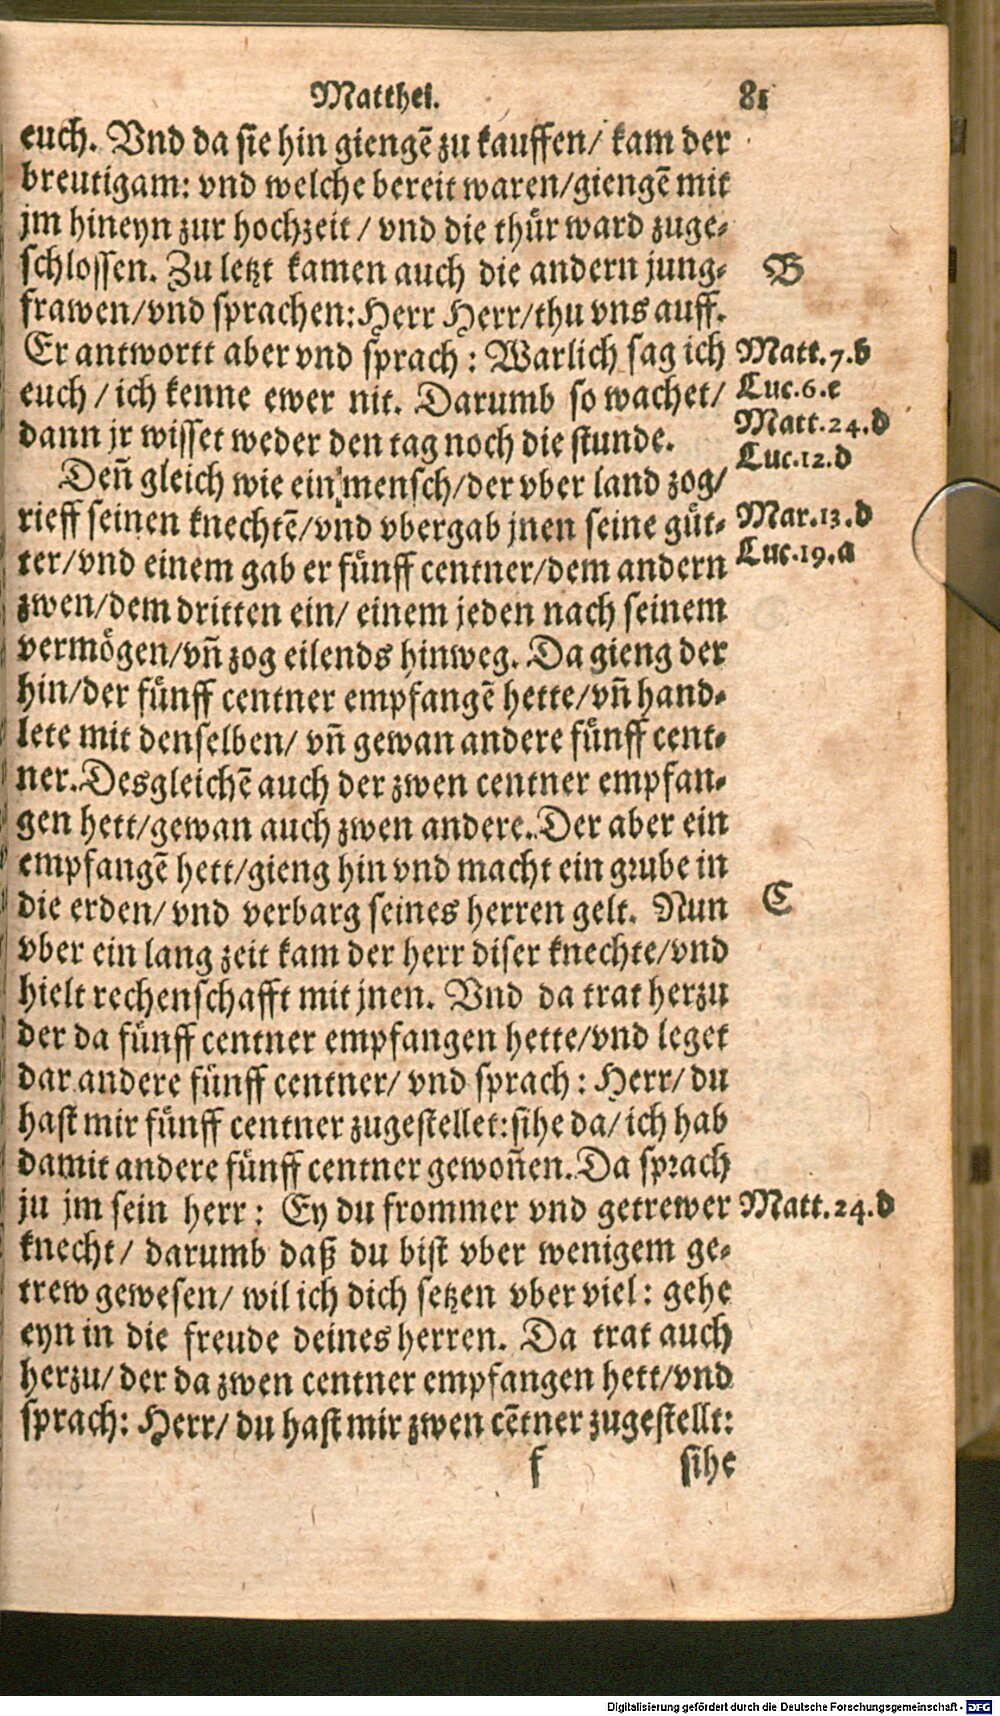 Matthei. 81
euch. Vnd da sie hin giengē zu kauffen/ kam der
breutigam: vnd welche bereit waren/giengē mit
jm hineyn zur hochzeit / vnd die thür ward zuge-
schlossen. Zu letzt kamen auch die andern jung-
B
frawen/vnd sprachen: Herr Herr/thu vns auff.
Er antwortt aber vnd sprach : Warlich sag ich
Matt.7.b
euch / ich kenne ewer nit. Darumb so wachet/
Luc.6.e
dann jr wisset weder den tag noch die stunde.
Matt.24.d
Luc.12.d
Deñ gleich wie ein mensch/der vber land zog/
rieff seinen knechtē/vnd vbergab jnen seine güt-
Mar.13.d
ter/vnd einem gab er fünff centner/dem andern
Luc.19.a
zwen/dem dritten ein/ einem jeden nach seinem
vermögen/vñ zog eilends hinweg. Da gieng der
hin/der fünff centner empfangē hette/vñ hand-
lete mit denselben/ vñ gewan andere fünff cent-
ner. Desgleichē auch der zwen centner empfan-
gen hett/gewan auch zwen andere. Der aber ein
empfangē hett/gieng hin vnd macht ein grube in
die erden/ vnd verbarg seines herren gelt. Nun
C
vber ein lang zeit kam der herr diser knechte/vnd
hielt rechenschafft mit jnen. Vnd da trat herzu
der da fünff centner empfangen hette/vnd leget
dar andere fünff centner/ vnd sprach : Herr/ du
hast mir fünff centner zugestellet: sihe da/ ich hab
damit andere fünff centner gewoñen. Da sprach
ju jm sein herr : Ey du frommer vnd getrewer
Matt.24.d
knecht/ darumb daß du bist vber wenigem ge-
trew gewesen/ wil ich dich setzen vber viel : gehe
eyn in die freude deines herren. Da trat auch
herzu/ der da zwen centner empfangen hett/vnd
sprach: Herr/ du hast mir zwen cētner zugestellt:
f sihe
Digitalisierung gefördert durch die Deutsche Forschungsgemeinschaft - DFG